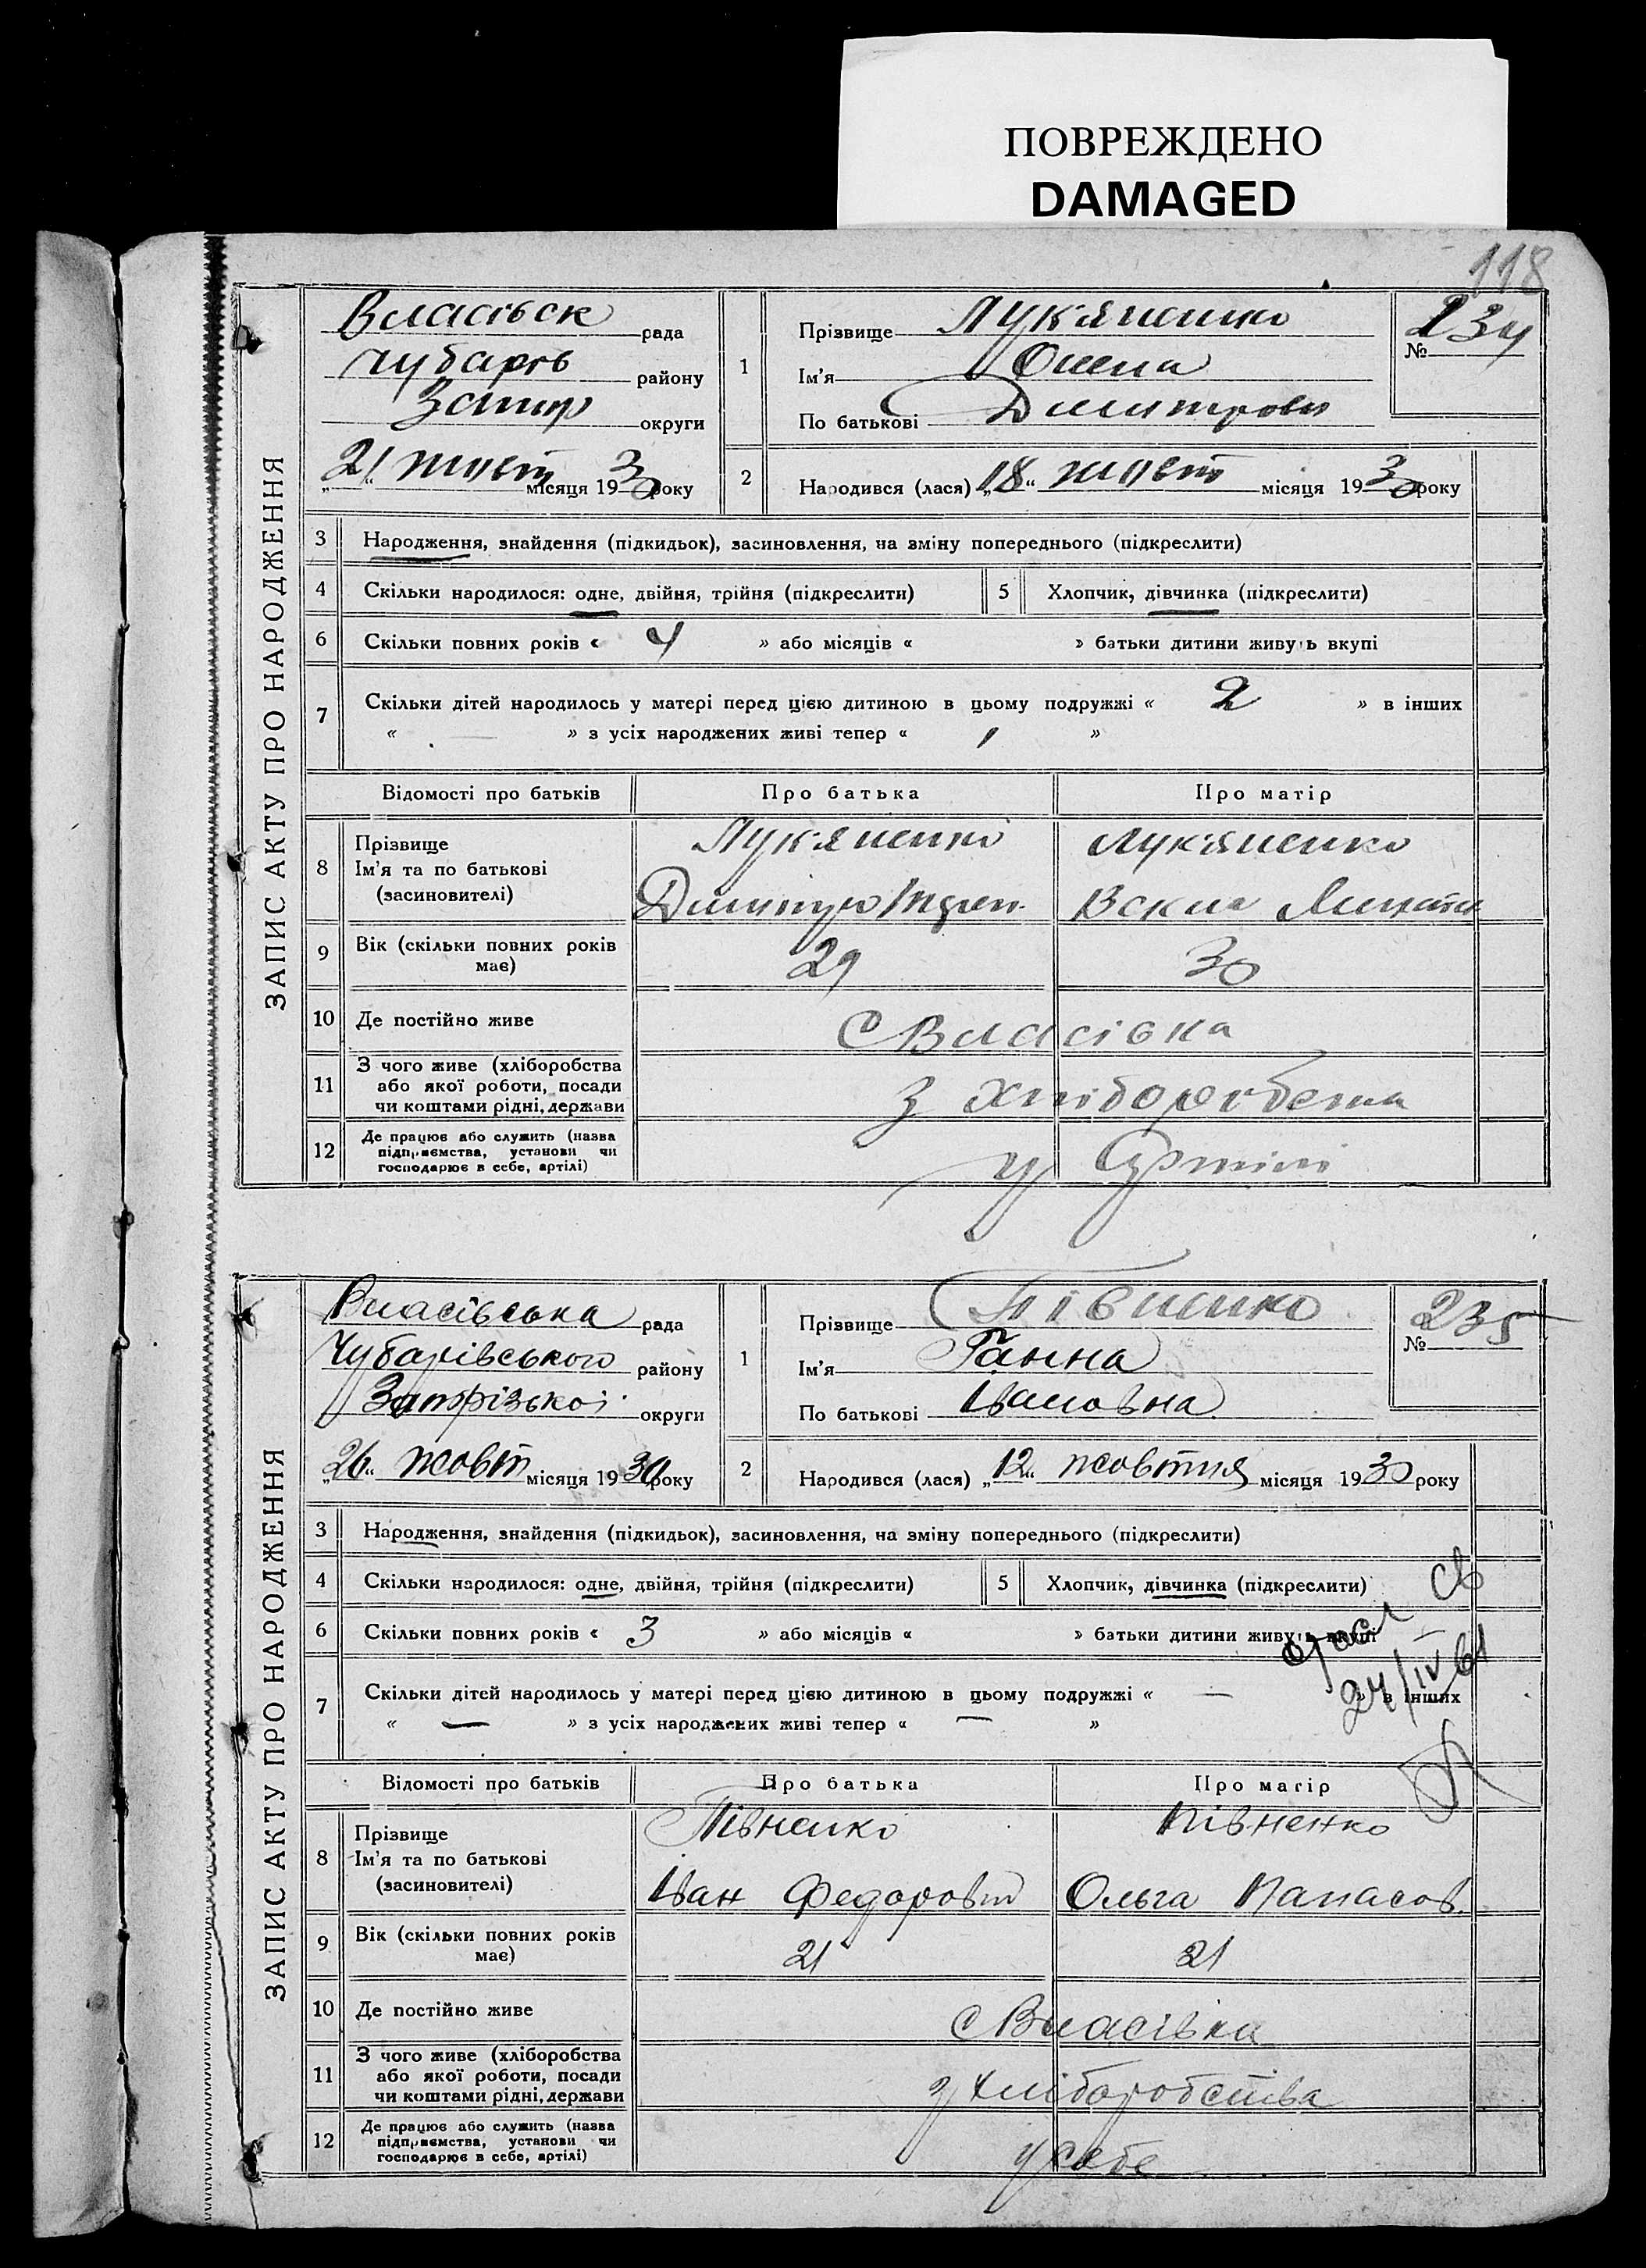 ПОВРЕЖДЕНО
DAMAGED
118
ЗАПИС АКТУ ПРО НАРОДЖЕННЯ
Власівськ рада
Чубарів району
Запор округи
„21“ жовт місяця 1930 року
1
Прізвище Лук'яненко
Ім'я Олена
По батькові Дмитровн
№ 234
2
Народився (лася) „18“ жовт місяця 1930 року
3 Народження, знайдення (підкидьок), засиновлення, на зміну попереднього (підкреслити)
4 Скільки народилося: одне, двійня, трійня (підкреслити) 5 Хлопчик, дівчинка (підкреслити)
6 Скільки повних років « 4 » або місяців « » батьки дитини живуть вкупі
7 Скільки дітей народилось у матері перед цією дитиною в цьому подружжі « 2 » в інших
« — » з усіх народжених живі тепер « 1 »
Відомості про батьків Про батька Про матір
8 Прізвище
Ім'я та по батькові
(засиновителі)
Лук'яненко Лук'яненко
Дмитро
9 Вік (скільки повних років
має) 29 30
10 Де постійно живе с Власівка
11 З чого живе (хліборобства
або якої роботи, посади
чи коштами рідні, держави
з хліборобства
12 Де працює або служить (назва
підприємства, установи чи
господарює в себе, артілі)
у Артілі
ЗАПИС АКТУ ПРО НАРОДЖЕННЯ
Власівська рада
Чубарівського району
Запорізької округи
„26“ жовт місяця 1930 року
1
Прізвище Півненко
Ім'я Ганна
По батькові Івановна
№ 235
2
Народився (лася) „12“ жовтня місяця 1930 року
3 Народження, знайдення (підкидьок), засиновлення, на зміну попереднього (підкреслити)
4 Скільки народилося: одне, двійня, трійня (підкреслити) 5 Хлопчик, дівчинка (підкреслити)
6 Скільки повних років « 3 » або місяців « » батьки дитини живуть вкупі
7 Скільки дітей народилось у матері перед цією дитиною в цьому подружжі « — » в інших
« — » з усіх народжених живі тепер « — »
24/IV 61
Відомості про батьків Про батька Про матір
8 Прізвище
Ім'я та по батькові
(засиновителі)
Півненко Півненко
Іван Федорович Ольга Панасов.
9 Вік (скільки повних років
має) 21 21
10 Де постійно живе с Власівка
11 З чого живе (хліборобства
або якої роботи, посади
чи коштами рідні, держави
з хліборобства
12 Де працює або служить (назва
підприємства, установи чи
господарює в себе, артілі)
у себе